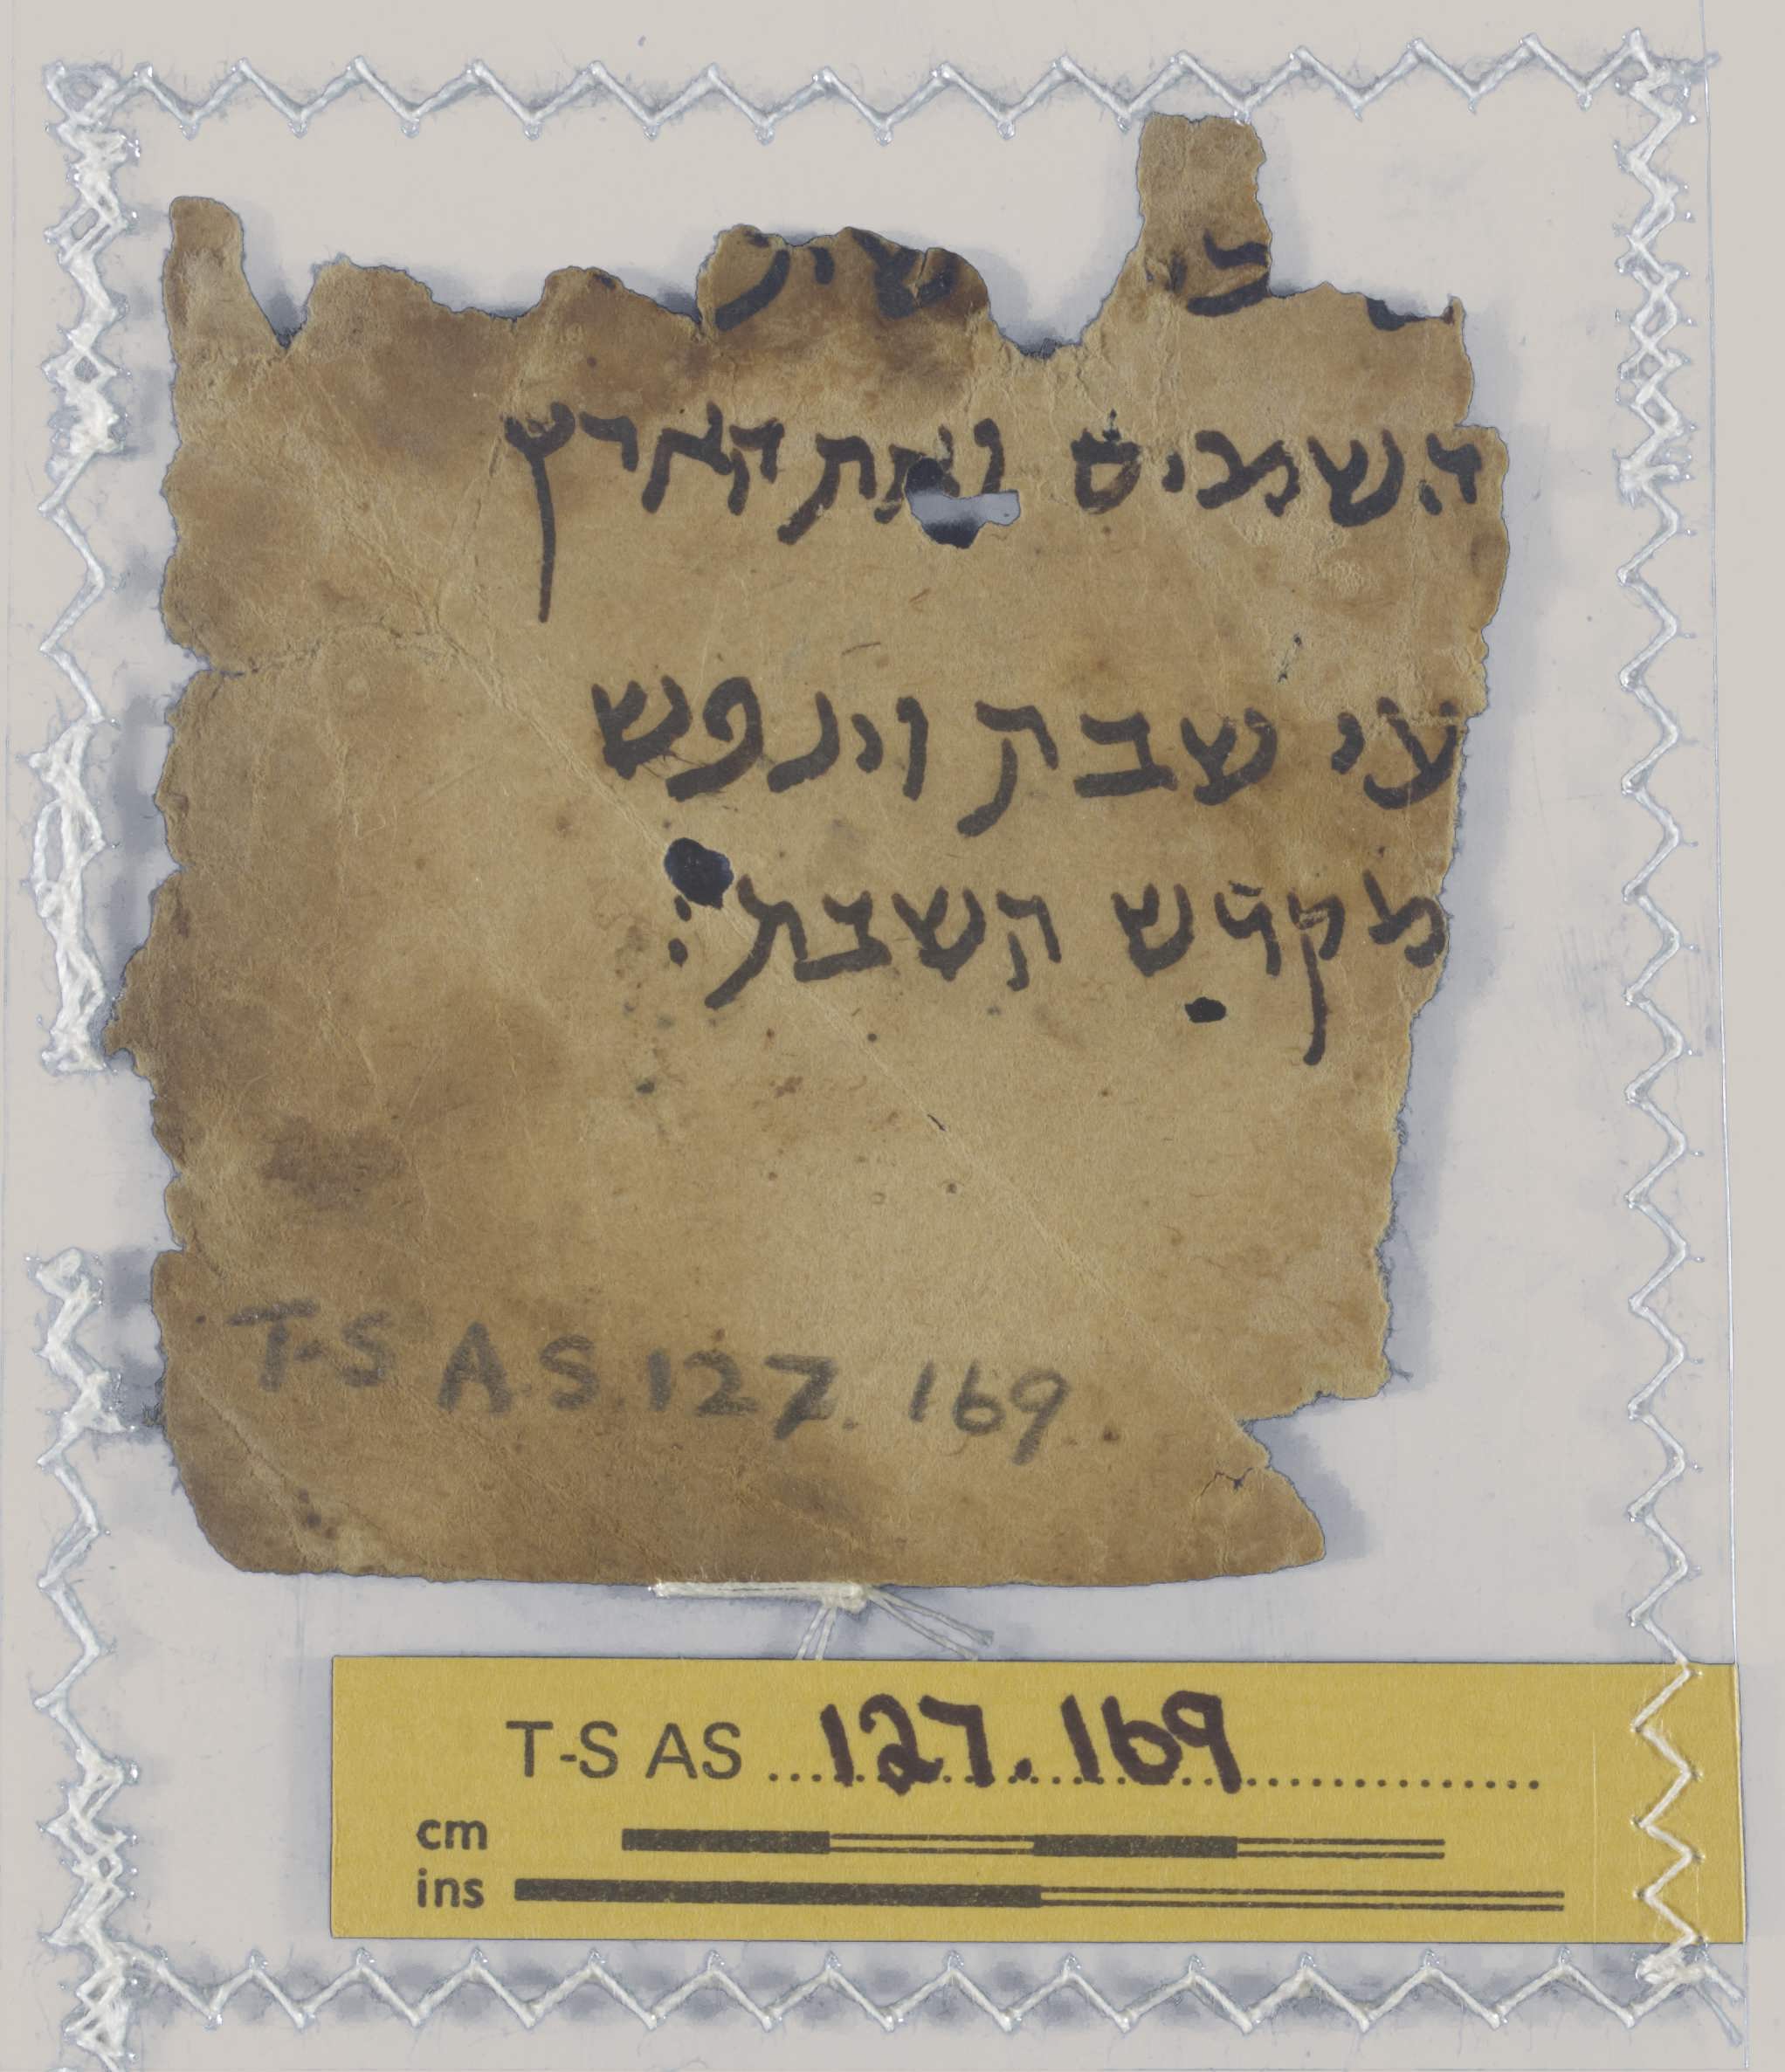 השמים ואת הארץ
עי שבת וינפש
מקדש השבת:
T-S AS 127.169
T-S AS 127.169
cm
ins